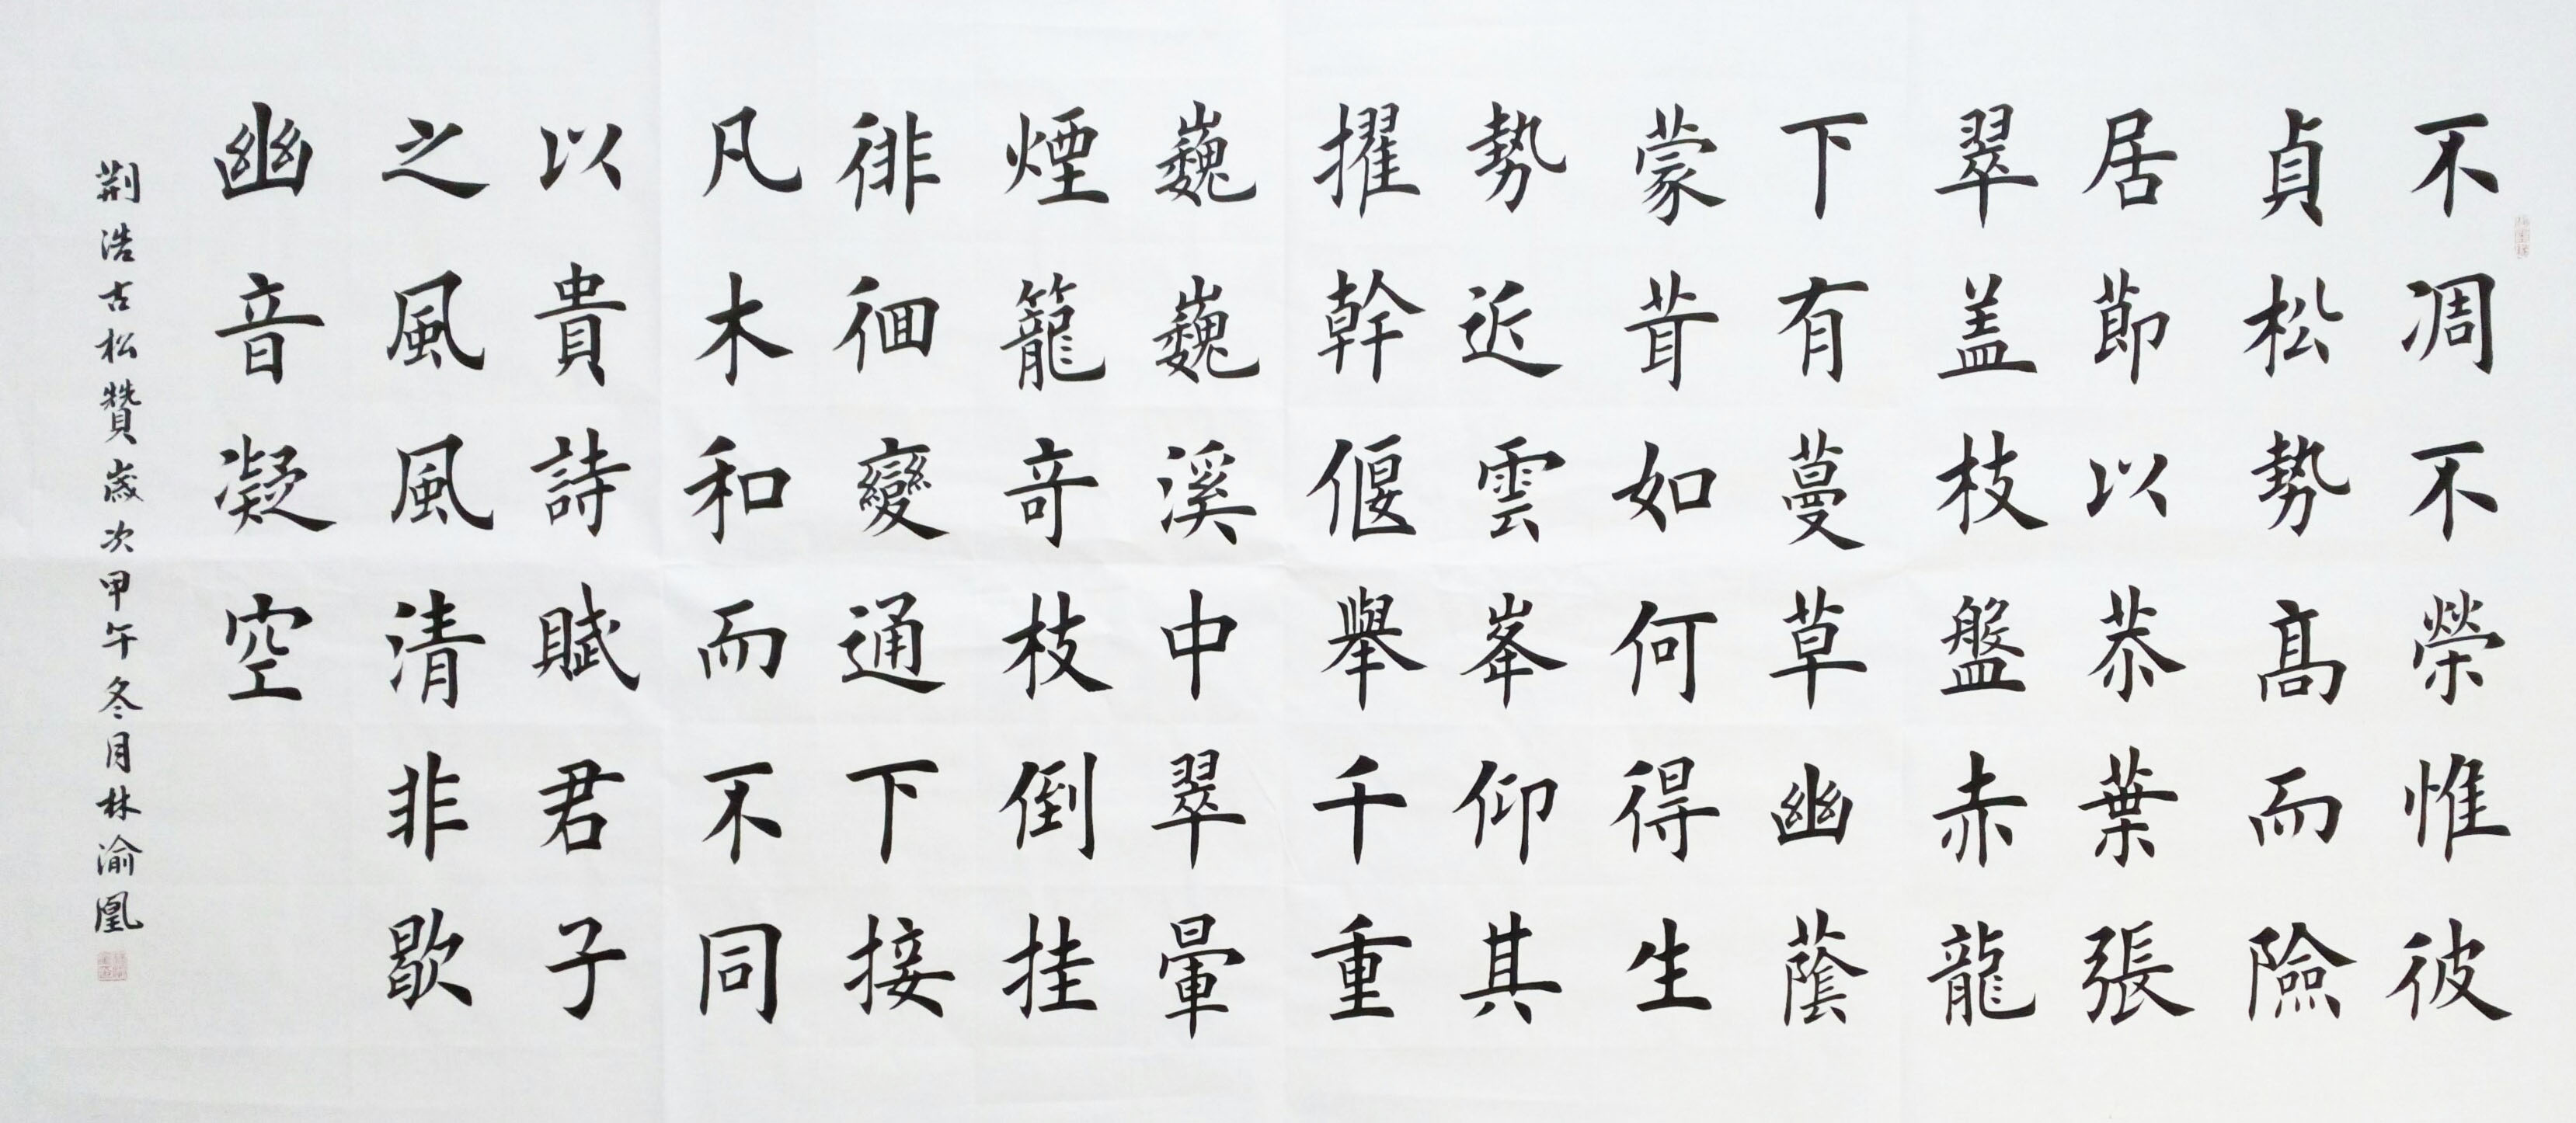 不凋不榮惟彼
貞松勢高而險
居節以恭葉張
翠盖枝盤赤龍
下有蔓草幽蔭
蒙茸如何得生
勢近雲峯仰其
擢幹偃舉千重
巍巍溪中翠暈
煙籠奇枝倒挂
徘徊變通下接
凡木和而不同
以貴詩賦君子
之風風清非歇
幽音凝空
荆浩古松贊歲次甲午冬月林渝凰